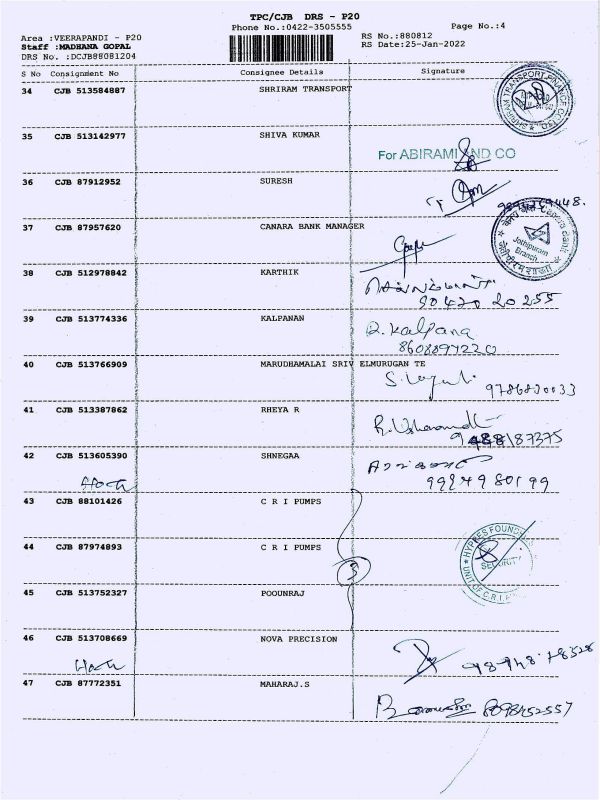 TPC/CJB DRS - P20
Phone No.:0422-3505555
Page No.:4
Area :VEERAPANDI - P20
RS No.:880812
Staff :MADHANA GOPAL
RS Date:25-Jan-2022
DRS No. :DCJB88081204
S No Consignment No Consignee Details Signature
34 CJB 513584887 SHRIRAM TRANSPORT
35 CJB 513142977 SHIVA KUMAR
For ABIRAMI AND CO
36 CJB 87912952 SURESH
37 CJB 87957620 CANARA BANK MANAGER
Jothipuram
Branch
38 CJB 512978842 KARTHIK
90420 20255
39 CJB 513774336 KALPANAN
R. Kalpana
8608897220
40 CJB 513766909 MARUDHAMALAI SRIV ELMURUGAN TE
9786820033
41 CJB 513387862 RHEYA R
9488187375
42 CJB 513605390 SHNEGAA
43 CJB 88101426 C R I PUMPS
44 CJB 87974893 C R I PUMPS
SECURITY
3
45 CJB 513752327 POOUNRAJ
46 CJB 513708669 NOVA PRECISION
47 CJB 87772351 MAHARAJ.S
8098452557